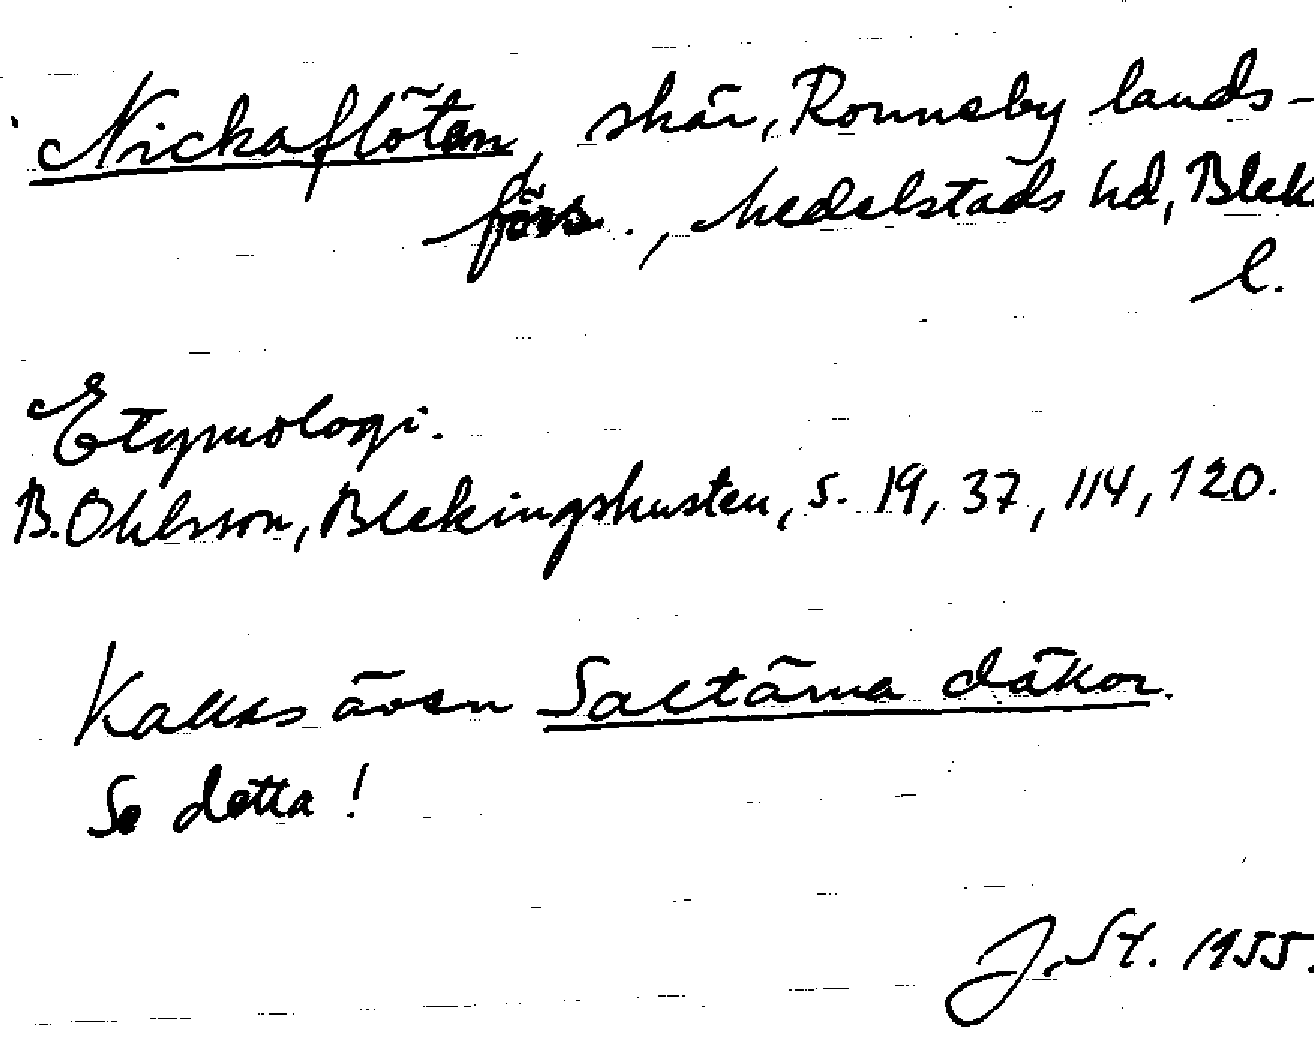 Nickaflöten, skär, Ronneby lands-
förs., Medelstads hd, Blek
l.
Etymologi.
B. Ohlsson, Blekingskusten, s. 19, 37, 114, 120.
Kallas även Saltärna däkor.
Se detta!
J. St. 1955.